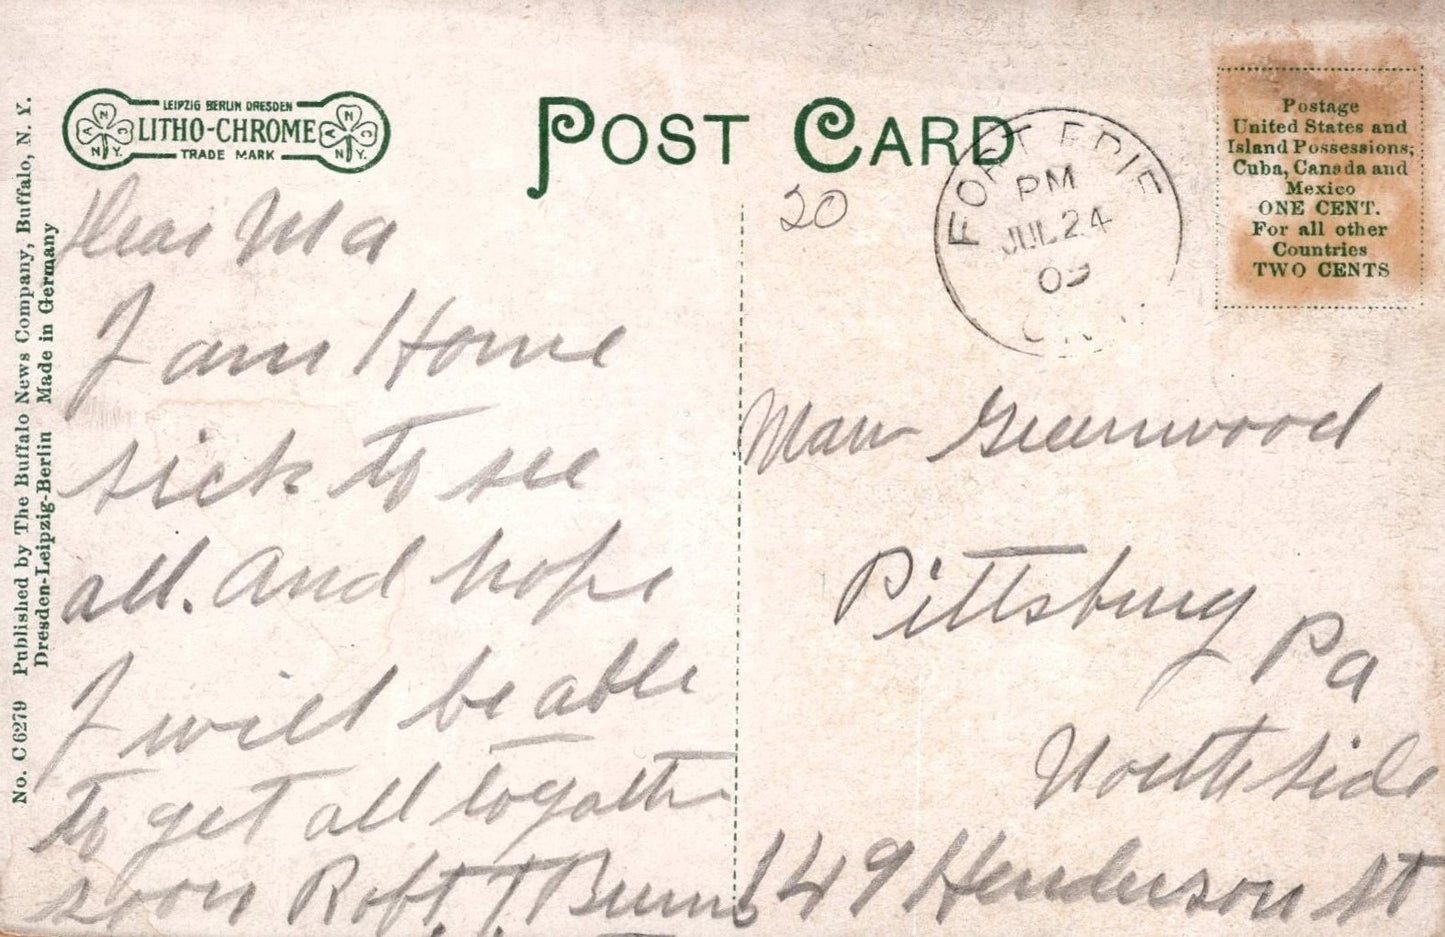 No. C 6279 Published by The Buffalo News Company, Buffalo, N. Y.
Dresden-Leipzig-Berlin Made in Germany
LEIPZIG BERLIN DRESDEN
LITHO-CHROME
TRADE MARK
A N C
N.Y.
A N C
N.Y.
POST CARD
20
FORT ERIE
PM
JUL 24
09
ONT
Postage
United States and
Island Possessions;
Cuba, Canada and
Mexico
ONE CENT.
For all other
Countries
TWO CENTS
Dear Ma
I am Home
sick to see
all. and hope
I will be able
to get all togath
soon Robt. J Burns
Greenwood
Pittsburg
Pa
North side
149 Henderson St